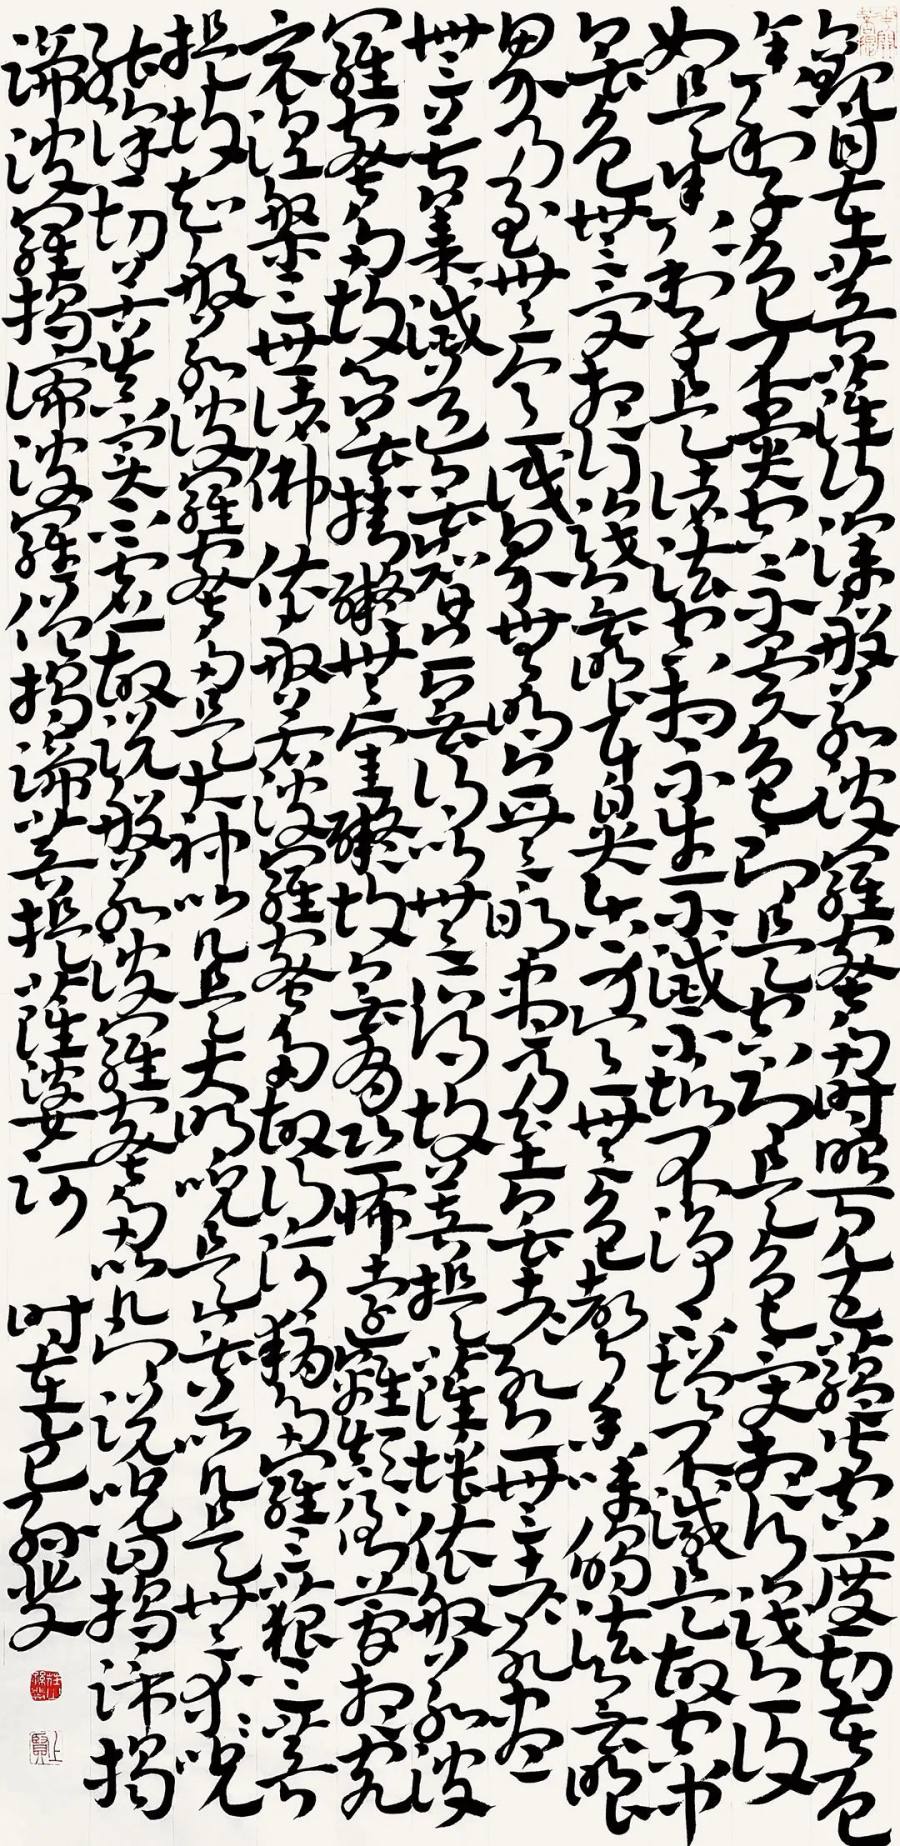 觀自在菩薩行深般若波羅蜜多時照見五蘊皆空度一切苦厄
舍利子色不異空空不異色色即是空空即是色受想行識亦復
如是舍利子是諸法空相不生不滅不垢不淨不增不減是故空中
無色無受想行識無眼耳鼻舌身意無色聲香味觸法無眼
界乃至無意識界無無明亦無無明盡乃至無老死亦無老死盡
無苦集滅道無智亦無得以無所得故菩提薩埵依般若波
羅蜜多故心無掛礙無掛礙故無有恐怖遠離顛倒夢想究
竟涅槃三世諸佛依般若波羅蜜多故得阿耨多羅三藐三菩
提故知般若波羅蜜多是大神咒是大明咒是無上咒是無等等咒
能除一切苦真實不虛故說般若波羅蜜多咒即說咒曰揭諦揭
諦波羅揭諦波羅僧揭諦菩提薩婆訶 時在乙巳